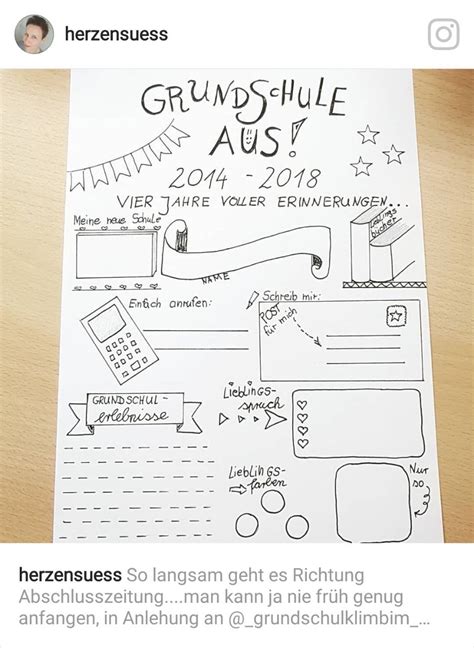 herzensuess
GRUNDSCHULE
AUS!
2014 - 2018
VIER JAHRE VOLLER ERINNERUNGEN...
Meine neue Schule
NAME
Lieblings
bücher
Einfach anrufen:
Schreib mir:
POST
für mich
GRUNDSCHUL-
erlebnisse
LIEBLINGS-
spruch
LIEBLINGS-
farben
Nur
so
herzensuess So langsam geht es Richtung
Abschlusszeitung....man kann ja nie früh genug
anfangen, in Anlehung an @_grundschulklimbim_...